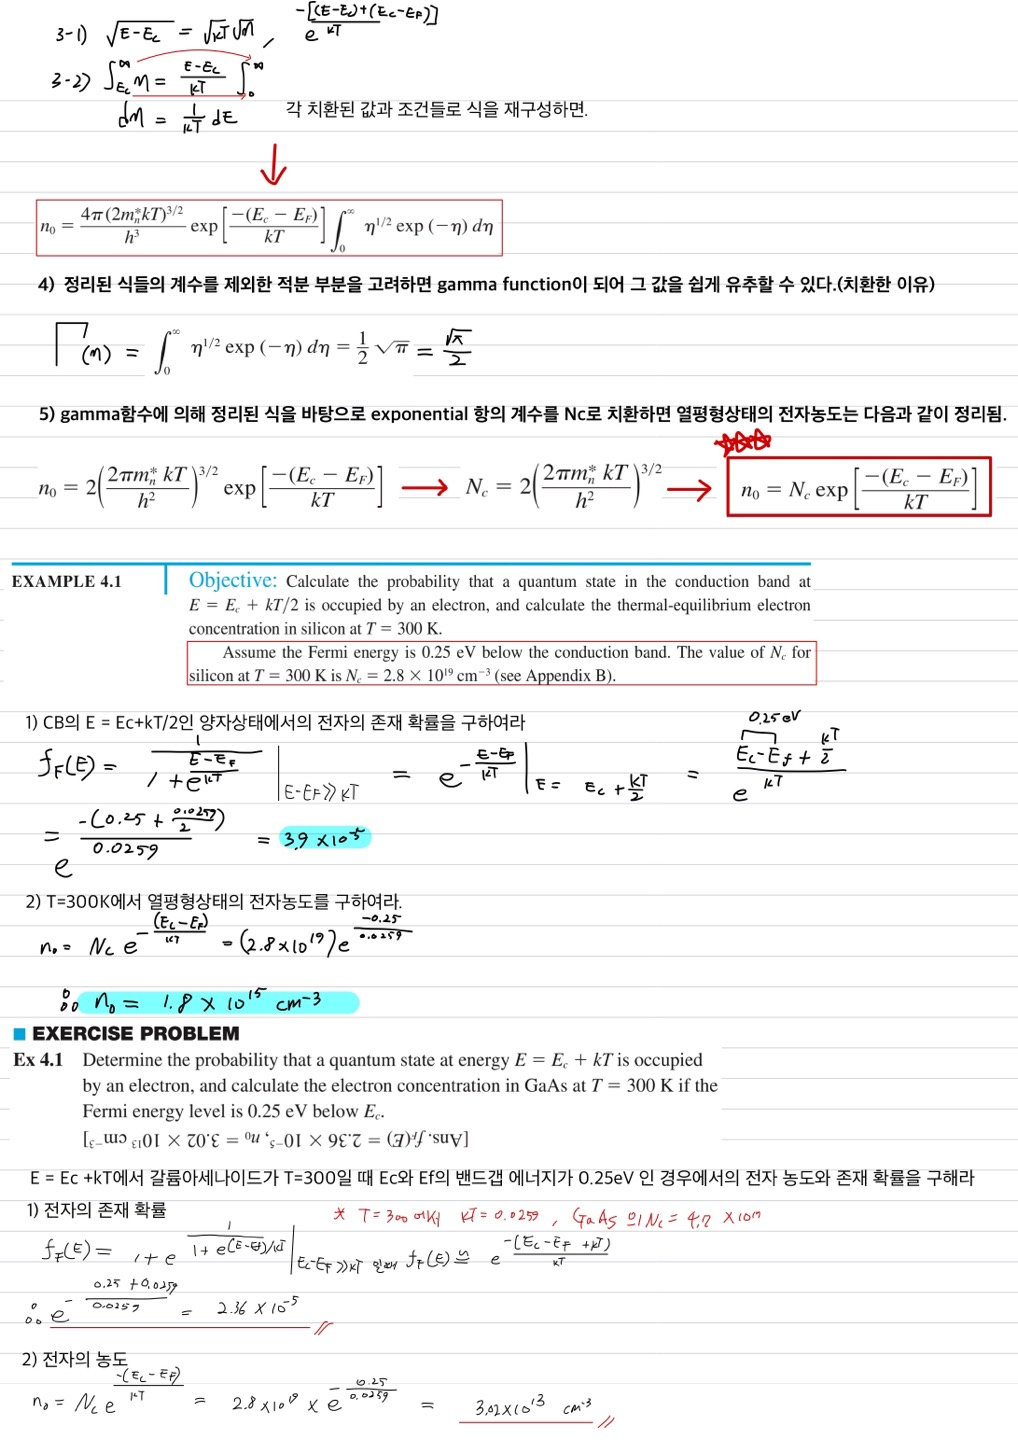 3-1) √(E-Ec) = √kT √η , e^(-[(E-Ec)+(Ec-EF)]/kT)
3-2) ∫_Ec^∞ η = (E-Ec)/kT ∫_0^∞
dη = 1/kT dE 각 치환된 값과 조건들로 식을 재구성하면.
n₀ = 4π(2m*ₙkT)^3/2 / h³ exp[-(Ec − EF)/kT] ∫_0^∞ η^1/2 exp(−η) dη
4) 정리된 식들의 계수를 제외한 적분 부분을 고려하면 gamma function이 되어 그 값을 쉽게 유추할 수 있다.(치환한 이유)
Γ(η) = ∫_0^∞ η^1/2 exp(−η) dη = 1/2 √π = √π/2
5) gamma함수에 의해 정리된 식을 바탕으로 exponential 항의 계수를 Nc로 치환하면 열평형상태의 전자농도는 다음과 같이 정리됨.
n₀ = 2(2πm*ₙ kT / h²)^3/2 exp[-(Ec − EF)/kT] → Nc = 2(2πm*ₙ kT / h²)^3/2 → n₀ = Nc exp[-(Ec − EF)/kT]
EXAMPLE 4.1 Objective: Calculate the probability that a quantum state in the conduction band at
E = Ec + kT/2 is occupied by an electron, and calculate the thermal-equilibrium electron
concentration in silicon at T = 300 K.
Assume the Fermi energy is 0.25 eV below the conduction band. The value of Nc for
silicon at T = 300 K is Nc = 2.8 × 10¹⁹ cm⁻³ (see Appendix B).
1) CB의 E = Ec+kT/2인 양자상태에서의 전자의 존재 확률을 구하여라
0.25eV
fF(E) = 1/(1+e^((E-EF)/kT)) |E-EF≫kT = e^(-(E-EF)/kT) |E= Ec+kT/2 = e^((Ec-Ef+kT/2)/kT)
= e^(-(0.25 + 0.0259/2)/0.0259) = 3.9 ×10⁻⁵
2) T=300K에서 열평형상태의 전자농도를 구하여라.
n₀ = Nc e^(-(Ec-EF)/kT) = (2.8×10¹⁹) e^(-0.25/0.0259)
∴ n₀ = 1.8 × 10¹⁵ cm⁻³
EXERCISE PROBLEM
Ex 4.1 Determine the probability that a quantum state at energy E = Ec + kT is occupied
by an electron, and calculate the electron concentration in GaAs at T = 300 K if the
Fermi energy level is 0.25 eV below Ec.
[Ans. fF(E) = 2.36 × 10⁻⁵, n₀ = 3.02 × 10¹³ cm⁻³]
E = Ec +kT에서 갈륨아세나이드가 T=300일 때 Ec와 Ef의 밴드갭 에너지가 0.25eV 인 경우에서의 전자 농도와 존재 확률을 구해라
1) 전자의 존재 확률 * T=300 에서 kT=0.0259 , GaAs 의 Nc = 4.7 × 10¹⁷
fF(E) = 1+e 1/(1+e^((E-Ef)/kT)) |Ec-EF≫kT 일때 fF(E) ≌ e^(-(Ec-EF+kT)/kT)
∴ e^(-(0.25+0.0259)/0.0259) = 2.36 × 10⁻⁵
2) 전자의 농도
n₀ = Nc e^(-(Ec-EF)/kT) = 2.8×10¹⁹ × e^(-0.25/0.0259) = 3.02×10¹³ cm⁻³